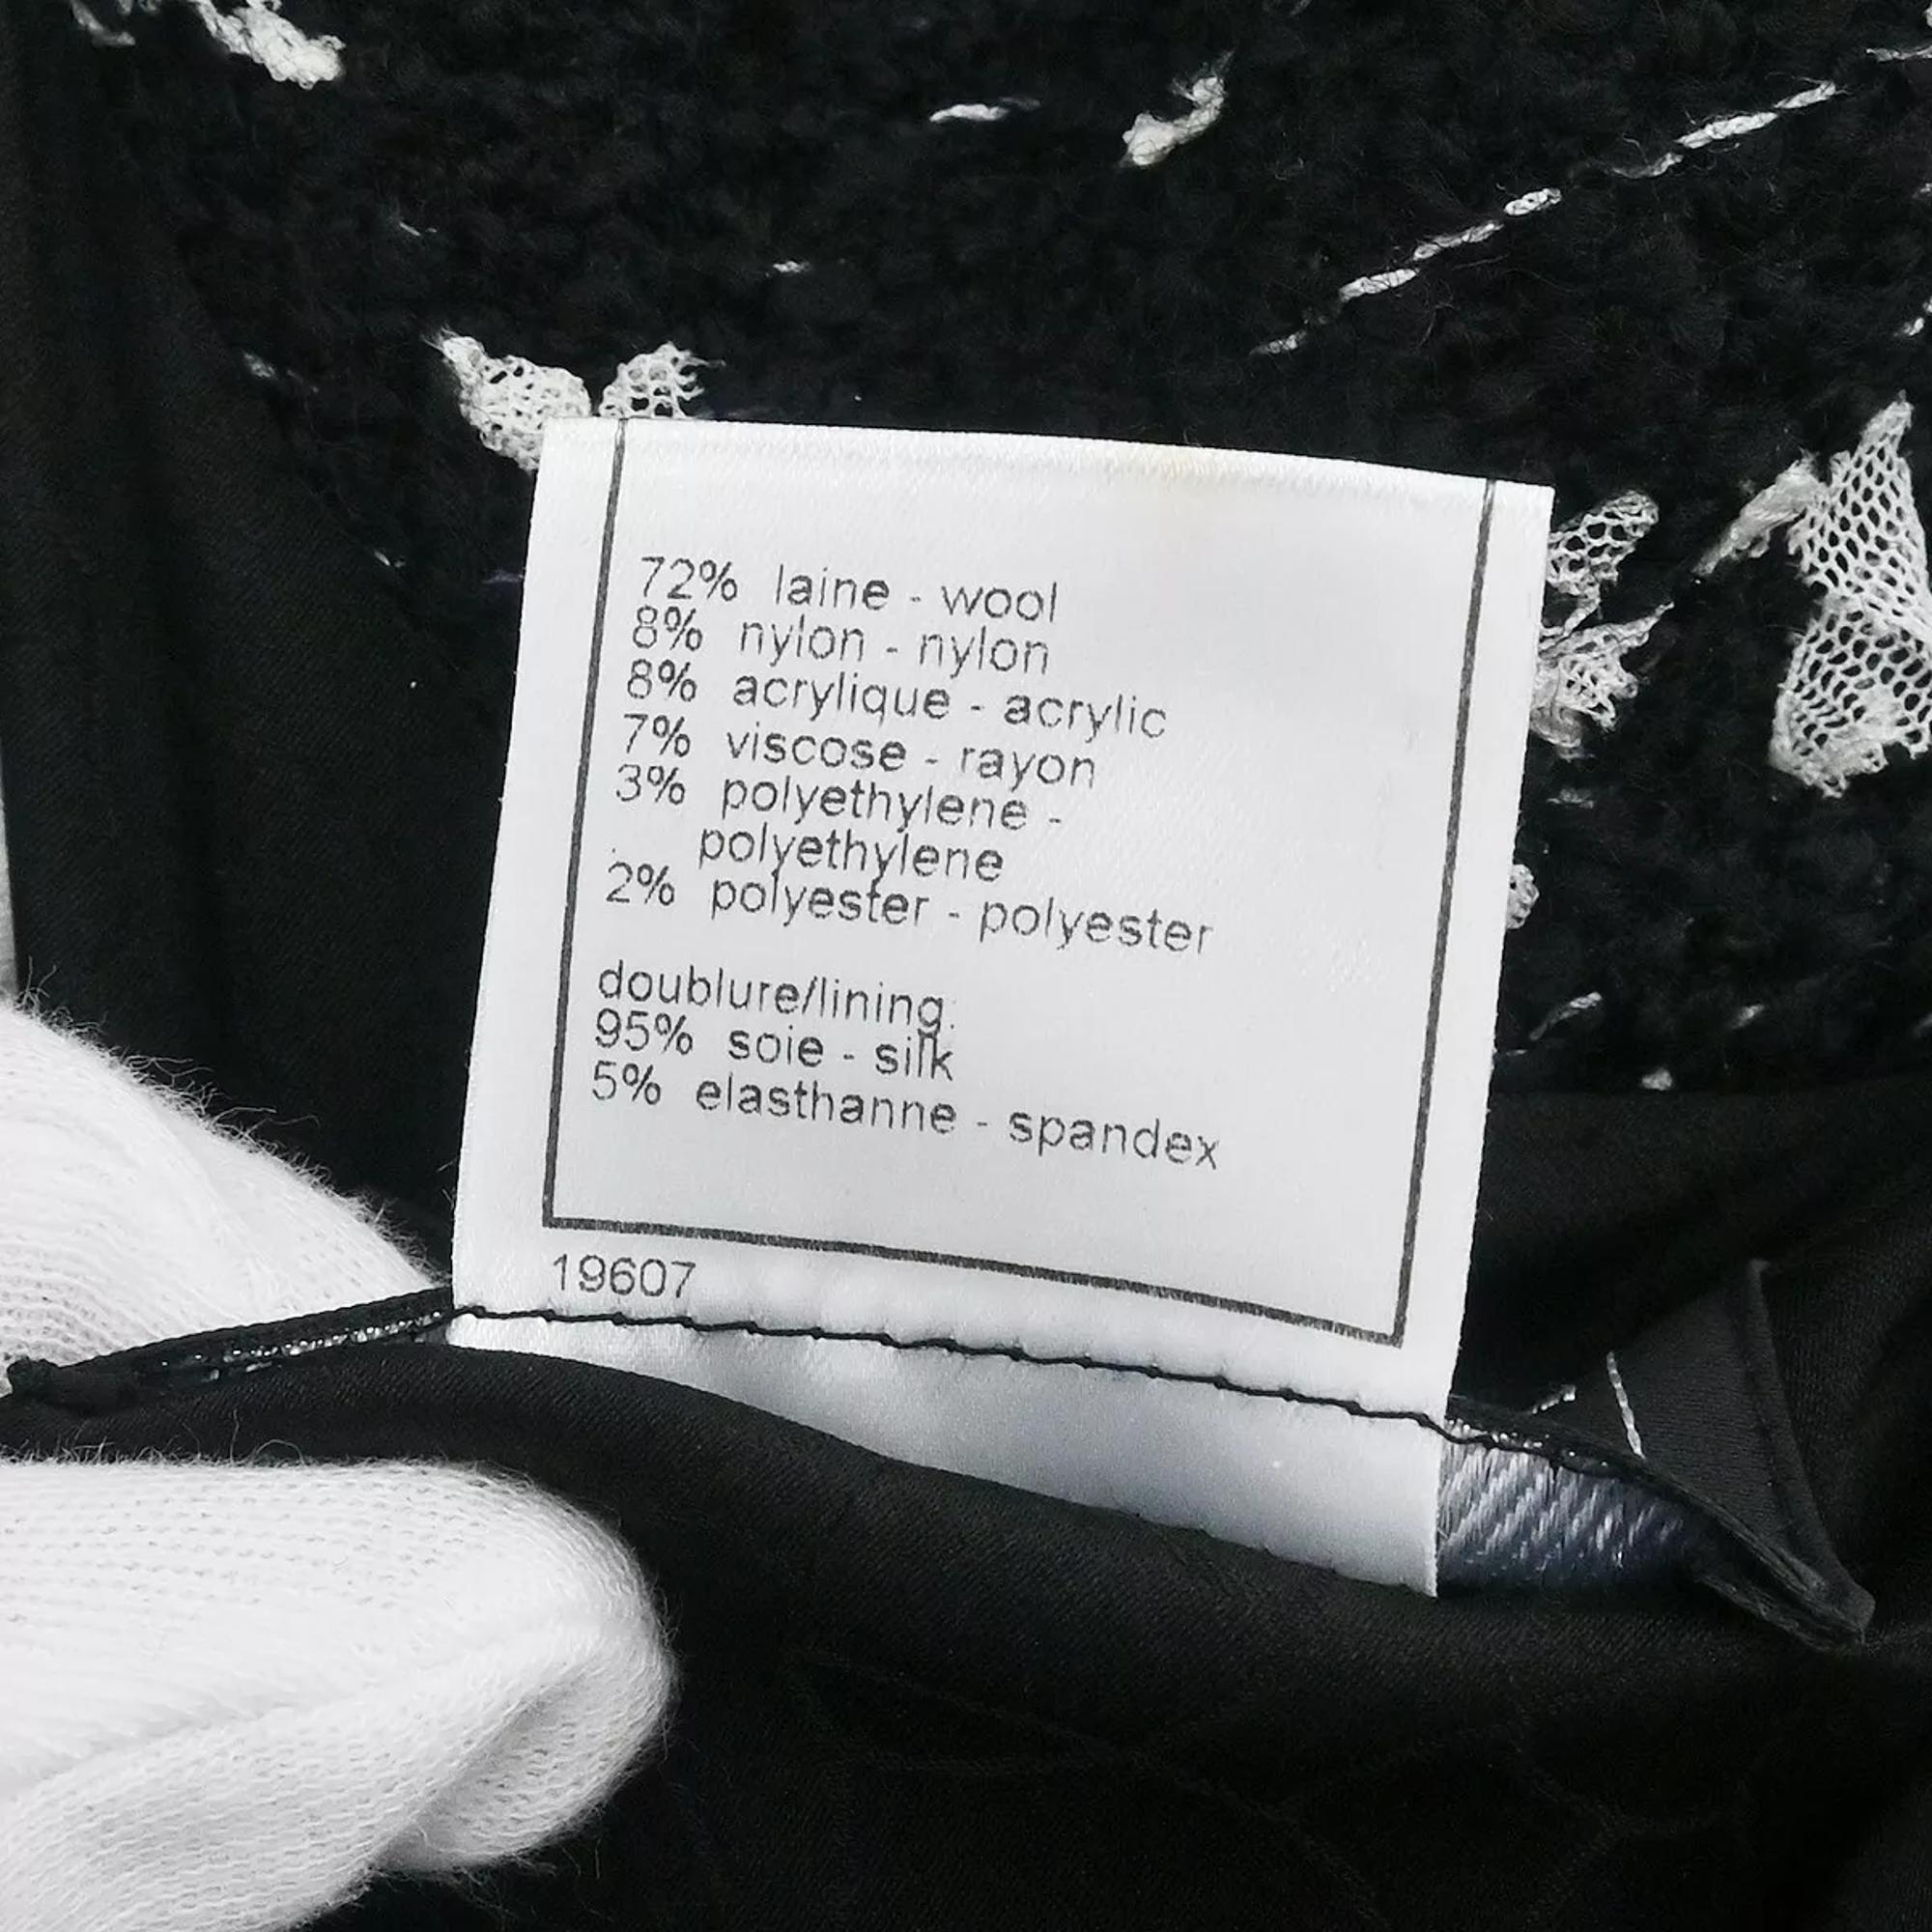 72% laine - wool
8% nylon - nylon
8% acrylique - acrylic
7% viscose - rayon
3% polyethylene -
polyethylene
2% polyester - polyester
doublure/lining:
95% soie - silk
5% elasthanne - spandex
19607